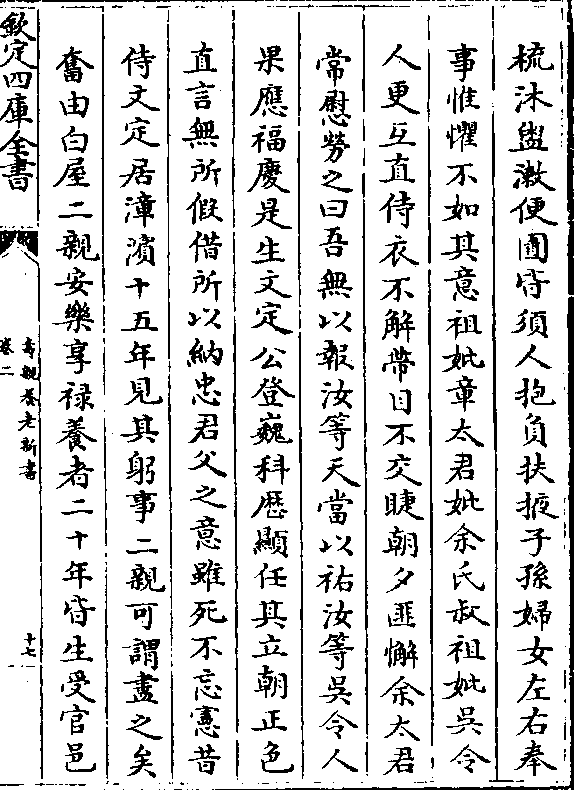 梳沐盥漱便圊皆須人抱負扶掖子孫婦女左右奉
事惟懼不如其意祖妣章太君妣余氏叔祖妣吳令
人更互直侍衣不解帶目不交睫朝夕匪懈余太君
常慰勞之曰吾無以報汝等天當以祐汝等吳令人
果應福慶是生文定公登巍科歴顯任其立朝正色
直言無所假借所以納忠君父之意雖死不忘憲昔
侍文定居漳濱十五年見其躬事二親可謂盡之矣
奮由白屋二親安樂享禄養者二十年皆生受官邑
欽定四庫全書
壽親養老新書
卷二
十七